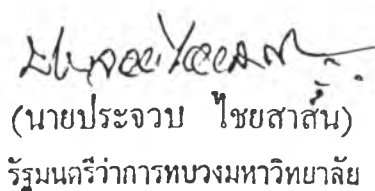 (นายประจวบ ไชยสาส์น)
รัฐมนตรีว่าการทบวงมหาวิทยาลัย